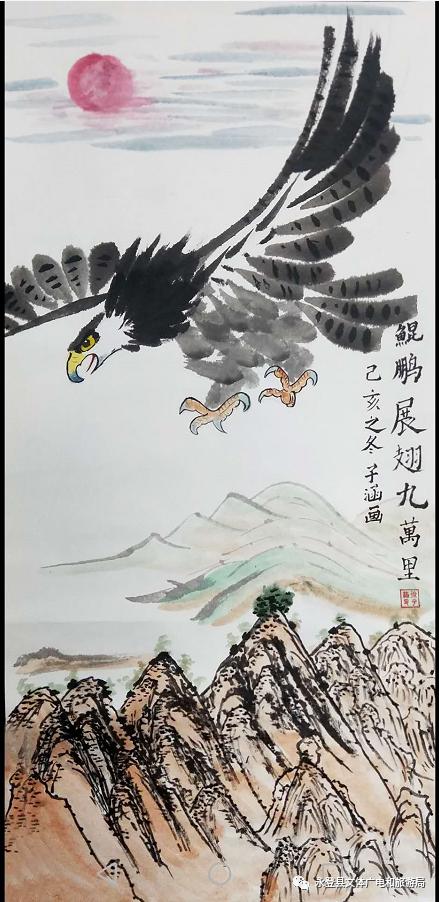 鲲鹏展翅九萬里
己亥之冬子涵画
永登县文体广电和旅游局